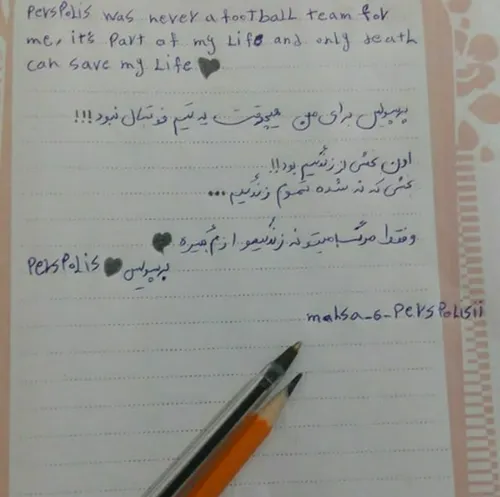 PersPolis was never a football team for
me, it's Part of my Life and only death
can save my Life
پرسپولیس برای من هیچوقت یه تیم فوتبال نبود!!!
اون بخشی از زندگیم بود!!
بخشی که نه شده تموم زندگیم...
و فقط مرگ میتونه زندگیمو ازم بگیره
پرسپولیس PersPolis
mahsa_6_PersPolisii